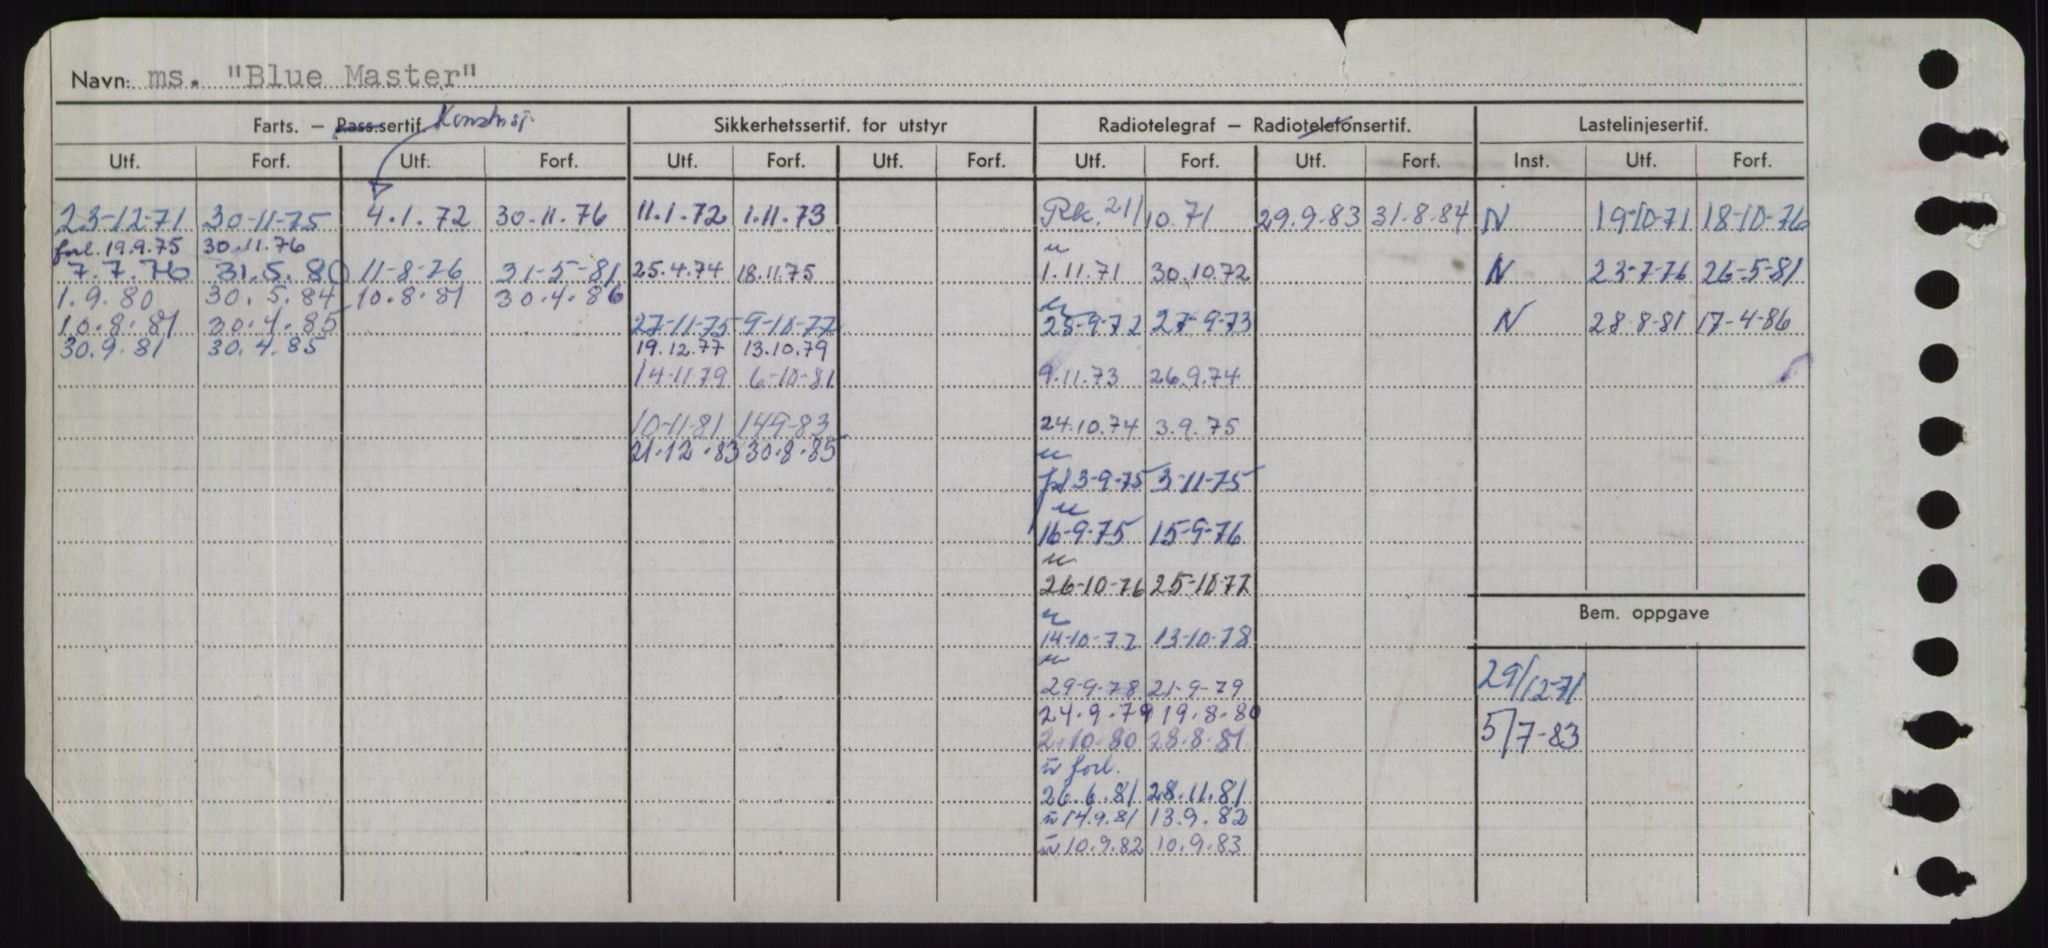 Navn: ms. "Blue Master"
Farts. – Pass.sertif. Konstruj. Sikkerhetssertif. for utstyr Radiotelegraf – Radiotelefonsertif. Lastelinjesertif.
Utf. Forf. Utf. Forf. Utf. Forf. Utf. Forf. Utf. Forf. Utf. Forf. Inst. Utf. Forf.
23-12-71 30-11-75 4.1.72 30.11.76 11.1.72 1.11.73 Rk. 21/10.71 29.9.83 31.8.84 N 19-10-71 18-10-76
forl. 19.9.75 30.11.76
7.7.76 31.5.80 11-8-76 31-5-81 25.4.74 18.11.75 1.11.71 30.10.72 N 23-7-76 26-5-81
1.9.80 30.5.84 10.8.81 30.4.86
10.8.81 30.4.85 27-11-75 9-10-77 28-9-72 27-9-73 N 28-8-81 17-4-86
30.9.81 30.4.85 19.12.77 13.10.79
14-11-79 6-10-81 9.11.73 26.9.74
10-11-81 149-83 24.10.74 3.9.75
21.12.83 30.8.85
3-9-75 3-11-75
16-9-75 15-9-76
26-10-76 25-10-77
Bem. oppgave
14-10-77 13-10-78
29-9-78 21-9-79 29/12-71
24.9.79 19.8.80
2.10.80 28.8.81 5/7-83
forl.
26.6.81 28.11.81
14.9.81 13.9.82
10.9.82 10.9.83